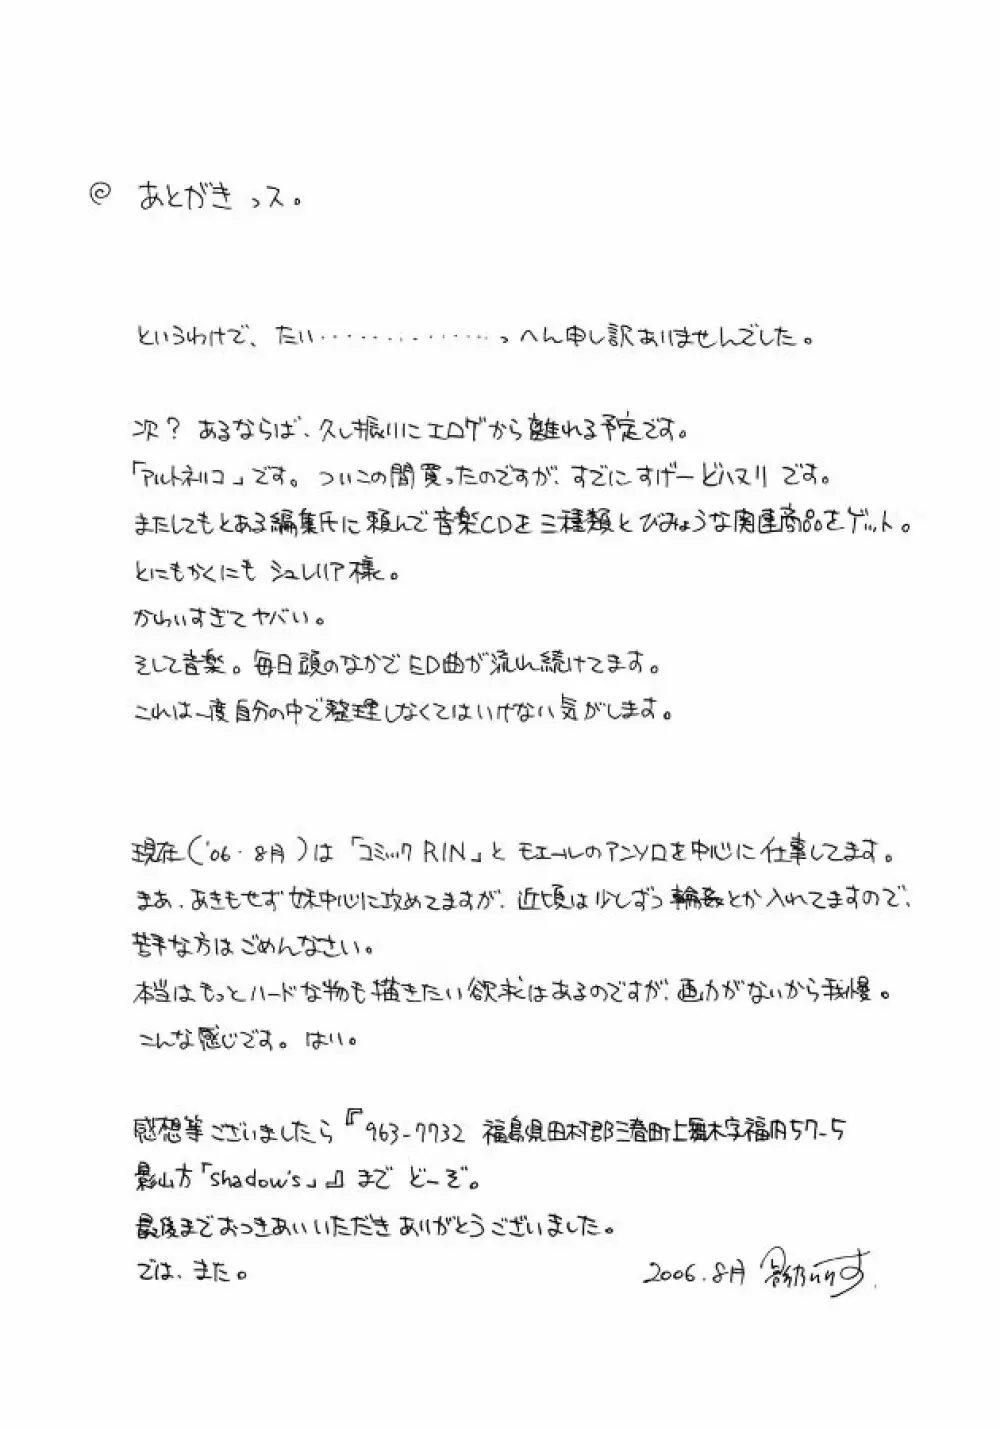 @ あとがきっス。
というわけで、たい・・・・・・・・・・・・・・・っへん申し訳ありませんでした。
次? あるならば、久し振りにエロゲから離れる予定です。
「アルトネリコ」です。ついこの間買ったのですが、すでにすげーどハマリです。
またしてもとある編集氏に頼んで音楽CDを三種類とびみょうな関連商品をゲット。
とにもかくにもシュレリア様。
かわいすぎてヤバい。
そして音楽。毎日頭のなかでED曲が流れ続けてます。
これは一度自分の中で整理しなくてはいけない気がします。
現在('06・8月)は「コミックRIN」とモエールのアンソロを中心に仕事してます。
まあ、あきもせず妹中心に攻めてますが、近頃は少しずつ輪姦とか入れてますので、
苦手な方はごめんなさい。
本当はもっとハードな物も描きたい欲求はあるのですが、画力がないから我慢。
こんな感じです。はい。
感想等ございましたら『963-7732 福島県田村郡三春町上舞木字福内57-5
影山方「Shadow's」』までどーぞ。
最後までおつきあいいただきありがとうございました。
では、また。 2006.8月